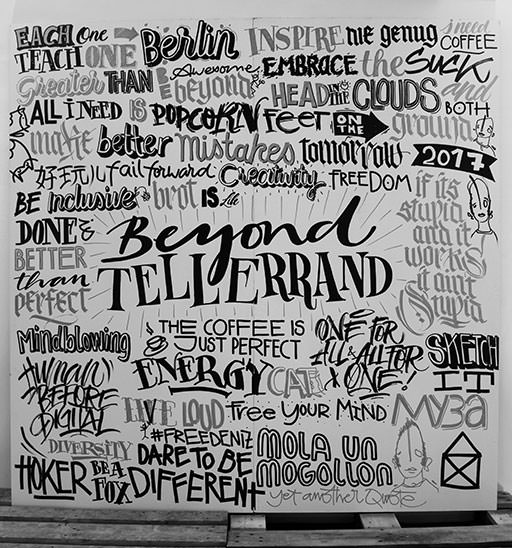 EACH One → Berlin INSPIRE me genug i need
TEACH ONE COFFEE
Greater THAN BE beyond Awesome EMBRACE the SUCK
HEAD IN THE CLOUDS and
ALL i NEED IS POPCORN FEET ON THE ground BOTH
make better mistakes tomorrow 2017
好玩儿 fail forward Creativity FREEDOM
BE inclusive brot IS
Beyond
TELLERRAND
DONE &
BETTER
than
PERFECT
if its
stupid
and it
works
it aint
Stupid
Mindblowing THE COFFEE IS
JUST PERFECT
ONE FOR
ALL & ALL FOR
ONE!
SKETCH
IT
HUMAN
BEFORE
DIGITAL
ENERGY CATE
LIVE LOUD Free YOUR MIND МУЗА
DIVERSITY #FREEDENIZ
HOKER BE A FOX DARE TO BE
DIFFERENT
MOLA UN
MOGOLLON
yet another Quote